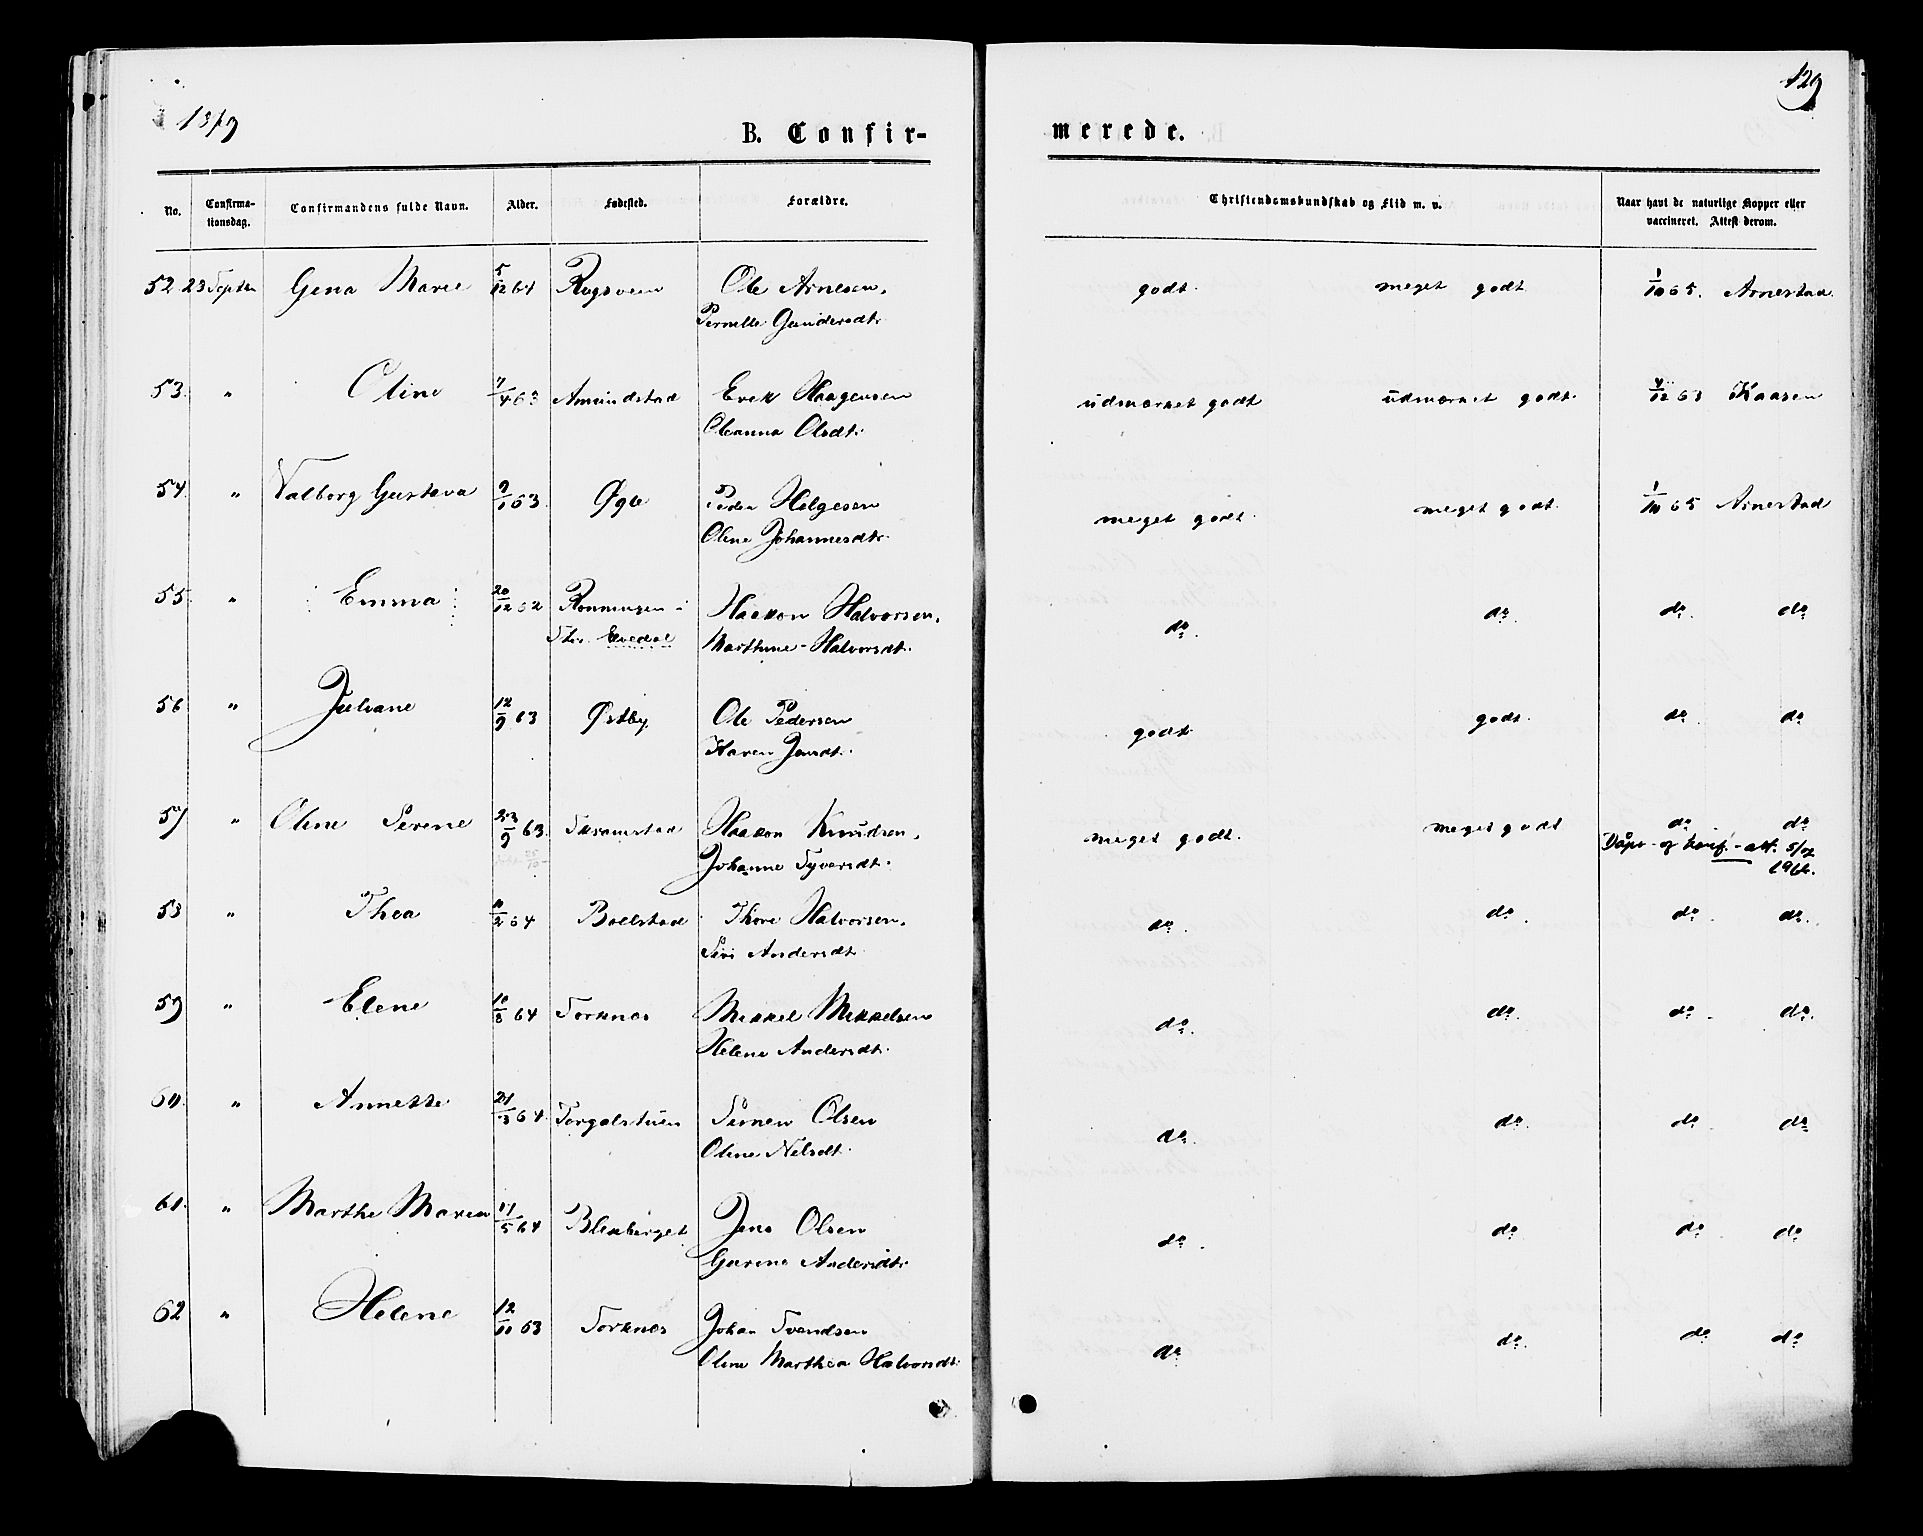 1879
129
B. Confirmerede.
No. Confirmationsdag. Confirmandens fulde Navn. Alder. Fødested. Forældre. Christendomskundskab og Flid m. v. Naar havt de naturlige Kopper eller vaccineret. Attest derom.
52. 23 Septbr Gina Marie 5/12 64 Rugsveen Ole Arnesen, godt. meget godt 1/10 65. Arnestad.
Pernille Gundersdtr.
53. " Oline 7/4 63 Amundstad Erek Haagensen udmærket godt udmærket godt. 4/12 63 Kaasen
Oleanna Olsdtr.
54. " Valborg Gustava 9/1 63. Øgle Peder Helgesen meget godt. meget godt. 1/10 65 Arnestad
Oline Johannesdtr.
55. " Emma 20/12 62 Rønningen i Haakon Halvorsen, do. do. do. do
Str. Evedal Marthine Halvorsdt.
56 " Juliane 12/9 63 Østby. Ole Pedersen godt. godt. do. do
Karen Jensdt.
57 " Oline Serene 23/9 63. Skramstad Haakon Knudsen, meget godt. meget godt do do
Johanne Syversdt. Dåps- og konf.-att. 5/7
1966.
58 " Thea 11/2 64 Bolstad Thore Halvorsen, do. do. do. do.
Siri Andersdt.
59 " Elene 10/8 64 Torknes Mikkel Mikkelsen do. do. do. do.
Helene Andersdt.
60. " Annette 21/3 64. Torgalstuen Simen Olsen do. do. do. do
Oline Nilsdt.
61. " Marthe Maren 17/5 64 Blekberget Jens Olsen do. do do. do
Gurine Andersdtr
62 " Helene 12/10 63 Torknes Johan Svendsen do. do. do do
Oline Marthea Halvorsdt.